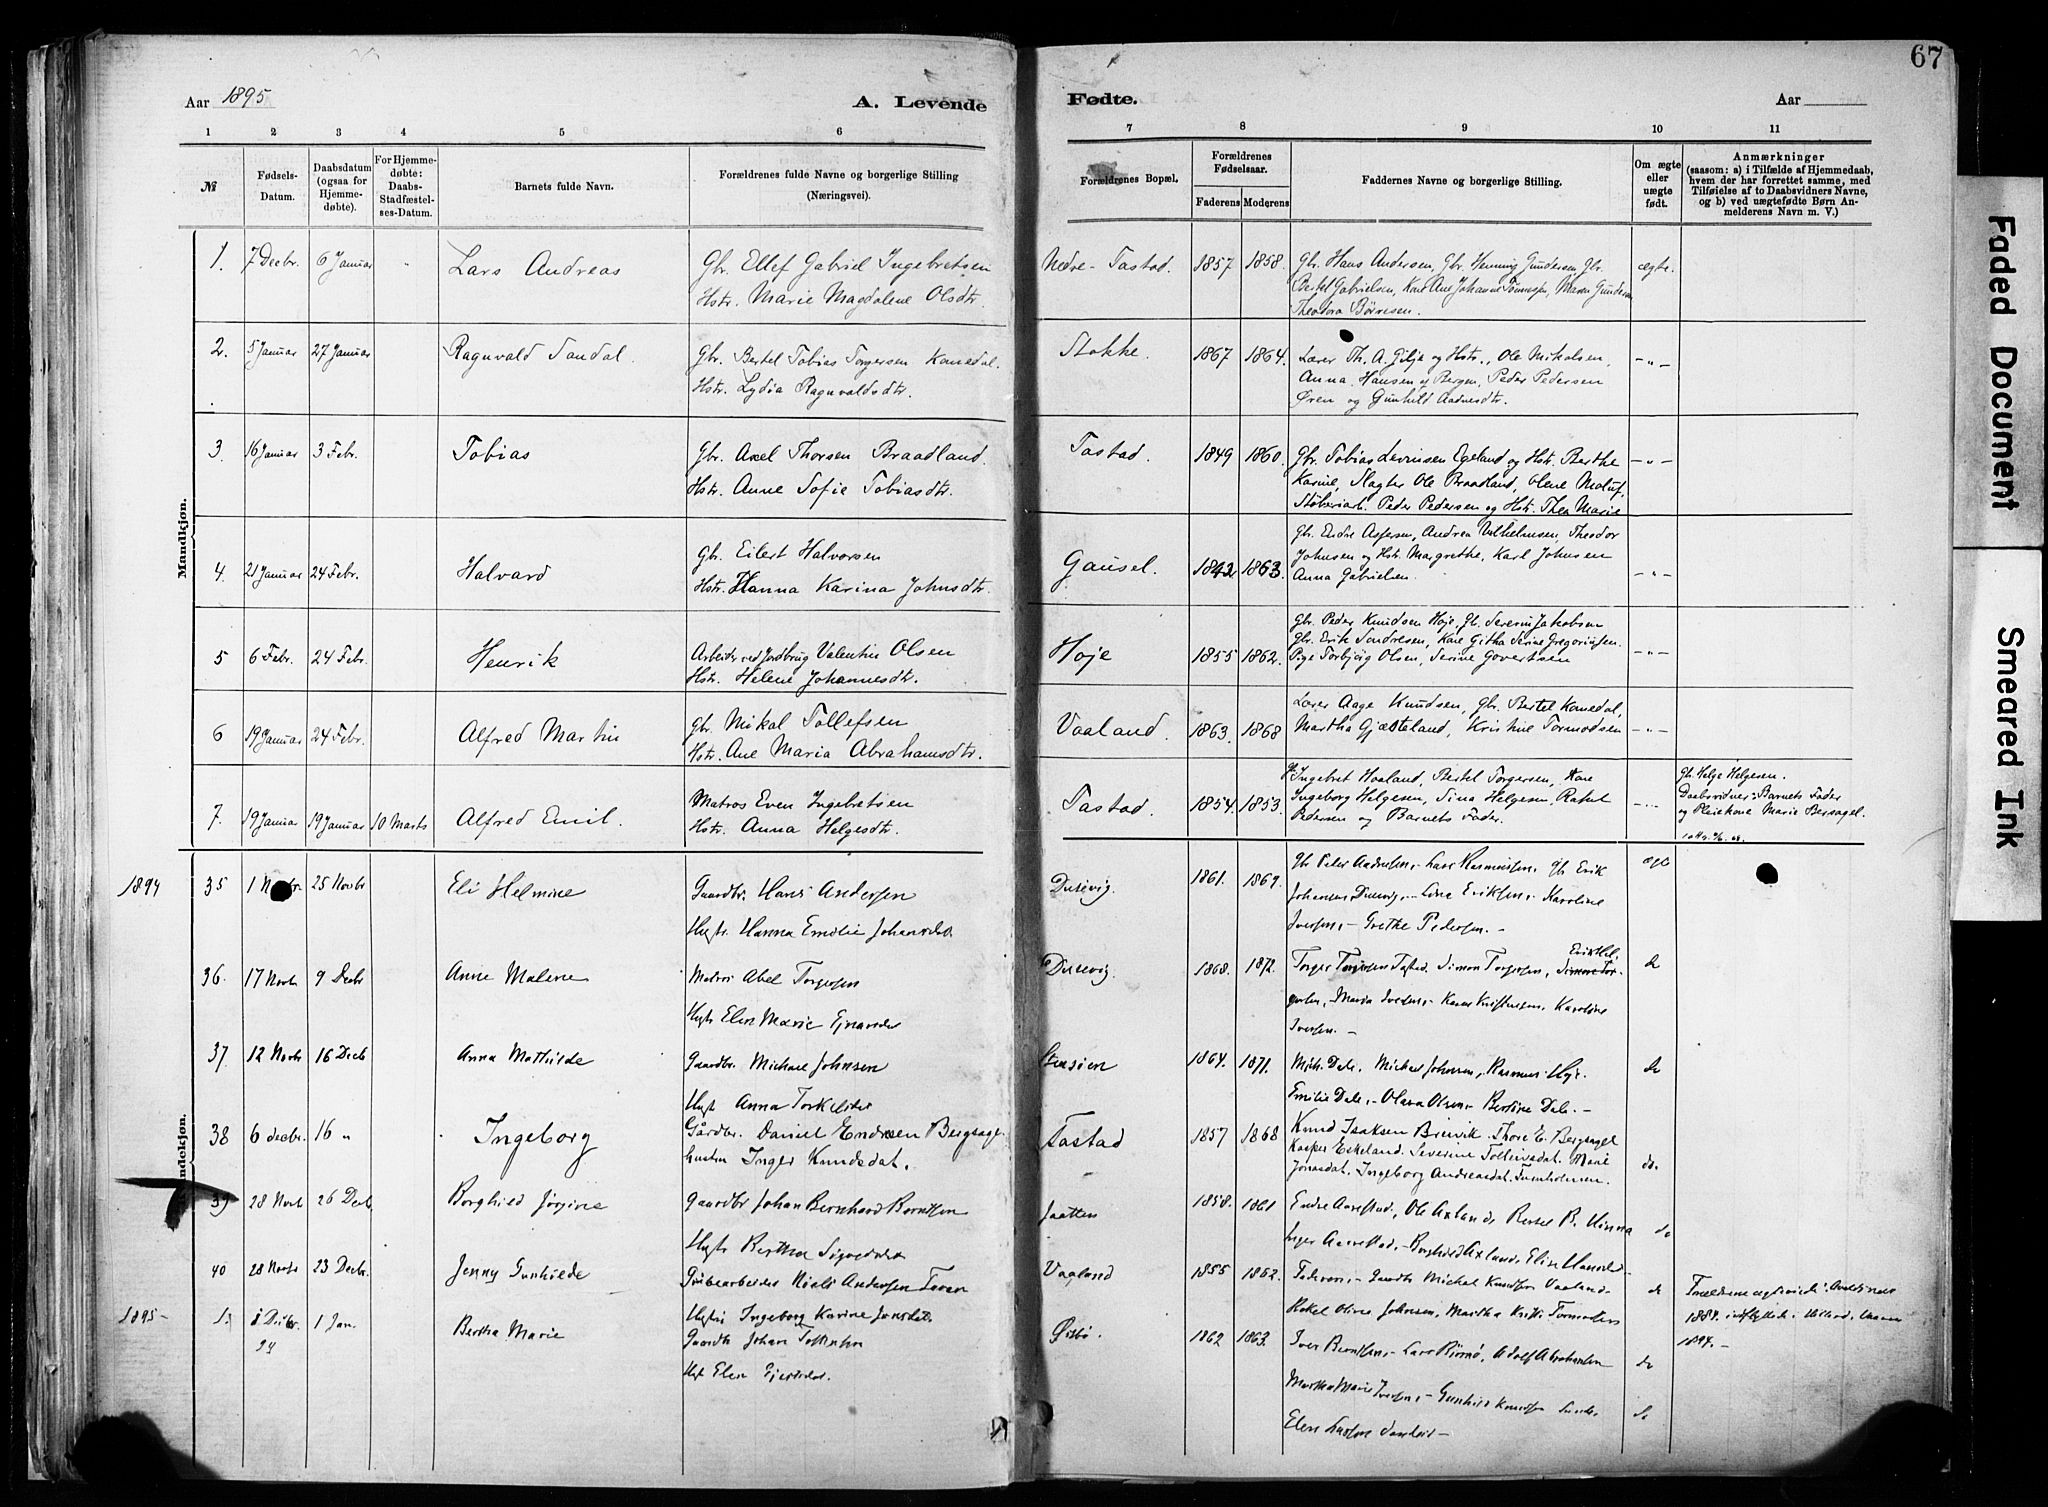 67
Aar 1895
A. Levende
Fødte.
Aar
1 2 3 4 5 6 7 8 9 10 11
№
Fødsels-Datum.
Daabsdatum (ogsaa for Hjemme-døbte).
For Hjemme-døbte: Daabs-Stadfæstel-ses-Datum.
Barnets fulde Navn.
Forældrenes fulde Navne og borgerlige Stilling (Næringsvei).
Forældrenes Bopæl.
Forældrenes Fødselsaar.
Faderens Moderens
Faddernes Navne og borgerlige Stilling.
Om ægte eller uægte født.
Anmærkninger
(saasom: a) i Tilfælde af Hjemmedaab,
hvem der har forrettet samme, med
Tilføielse af to Daabsvidners Navne,
og b) ved uægtefødte Børn An-
melderens Navn m. V.)
Mandkjøn.
1. 7 Decbr. 6 Januar " Lars Andreas Gbr. Ellef Gabriel Ingebretsen Nedre-Tastad. 1857 1858. Gbr. Hans Andersen, Gbr. Henning Gundersen, Gbr. ægte.
Hstr. Marie Magdalene Olsdtr. Bertel Gabrielsen, Kone Ane Johanne Tønnesen, Maren Gundersen
Theodora Børresen.
2. 5 Januar 27 Januar Ragnvald Sandal. Gbr. Bertel Tobias Torgersen Konedal. Stokke. 1867 1864. Lærer Th. A. Gilje og Hstr., Ole Mikalsen, — " —
Hstr. Lydia Ragnvaldsdtr. Anna Hansen af Bergen, Peder Pedersen
Øren og Gunhild Aadnesdtr.
3. 16 Januar 3 Febr. Tobias Gbr. Axel Thorsen Braadland. Tastad. 1849 1860. Gbr. Tobias Sevrinsen Egeland og Hstr. Berthe — " —
Hstr. Anne Sofie Tobiasdtr. Karine, Slagter Ole Braadland, Olene Maluf,
Støberiarb. Peder Pedersen og Hstr. Thea Marie
4. 21 Januar 24 Febr. Halvard Gbr. Eilert Halvorsen Gausel. 1842 1863. Gbr. Endre Aspersen, Andrea Vilhelmsen, Theodor
Hstr. Hanna Karina Johnsdtr. Johnsen og Hstr. Margrethe, Karl Johnsen
Anna Gabrielsen. — " —
5 6 Febr. 24 Febr. Henrik Arbeider ved Jordbrug Valentin Olsen Hoje 1855 1862. Gbr. Peder Knudsen Hoje, Gb. Severin Jakobsen
Hstr. Helene Johannesdtr. Gbr. Erik Sondresen, Kone Githa Serine Gregoriussen.
Pige Torbjørg Olsen, Serine Govertsen — " —
6 19 Januar 24 Febr. Alfred Martin Gbr. Mikal Tollefsen Vaaland. 1863. 1868 Lærer Aage Knudsen, Gbr. Bertel Konedal,
Hstr. Ane Maria Abrahamsdtr. Martha Gjæsteland, Kristine Tormodsen — " —
7. 19 Januar 19 Januar 10 Marts Alfred Emil. Matros Even Ingebretsen Tastad. 1854. 1853 Ingebret Haaland, Bertel Torgersen, Kone Gb. Helge Helgesen.
Hstr. Anna Helgesdtr. Ingeborg Helgesen, Sina Helgesen, Rakel Daabsvidner: Barnets Fader
Pedersen og Barnets Fader. og Pleiekone Marie Bersagel.
Kvindekjøn.
1894 35 1 Novbr. 25 Novbr Eli Helmine Gaardbr. Hans Andersen Dusevig. 1861. 1869. Gb Peter Andersen, - Lars Rasmussen, Gb Erik
Hust. Hanna Emilie Johansdtr Johansen Dusevig, - Line Eriksen, - Karoline
Iversen, - Grethe Pedersen. -
36. 17 Novbr 9 Decbr Anne Malene Matros Abel Torgersen Dusevig. 1868. 1872. Torger Torgersen Tastad, Simon Torgersen, do
Elen Marie Maria Iversen, - Karen Kristensen, Karoline
Iversen. -
37. 12 Novbr 16 Decb Anna Mathilde Gaardbr. Michael Johnsen 1864. 1871. Mich. Dale, Michael Johnsen, Rasmus Høje. do
Anna Emilie Dale, - Olava Olsen, - Bertine Dale. -
38 6 decbr. 16 " Ingeborg Gårdbr. Daniel Endresen Bergsagel Tastad 1857 1868 Knud Isaksen Brevik. Thore E. Bergsagel
hustru Inger Knudsdat. Kasper Eskeland. Severine Tollevsdat. Marie do.
Jonasdat. Ingeborg Andreasdat.
39 28 Novb 26 Decb. Borghild Jørgine Gaardbr Johan Bernhard Berntsen Jaatten 1858. 1861 Endre Aarestad, Ole Axland, Bertel B. Hinna do
Bertha Inger Aarestad, - Borghild Axland, Elise
40 28 Novbr 23 Decbr. Jenny Gunhilde Gribearbeider Niels Andersen Vaaland 1855 1862. Faderen, - Gaardb Michal Knudsen Vaaland. do
Ingeborg Karine Rakel Oline Johnsen, Martha 1894. -
1895- 1. 94 1 Jan. Bertha Marie Gaardb Johan 1862 1863. Iver Berntsen, - Lars Bjørnø, Adolf Abrahamsen do
Elen Martha Marie Iversen, - Gunhild Knudsen
Elen
Faded Document
Smeared Ink